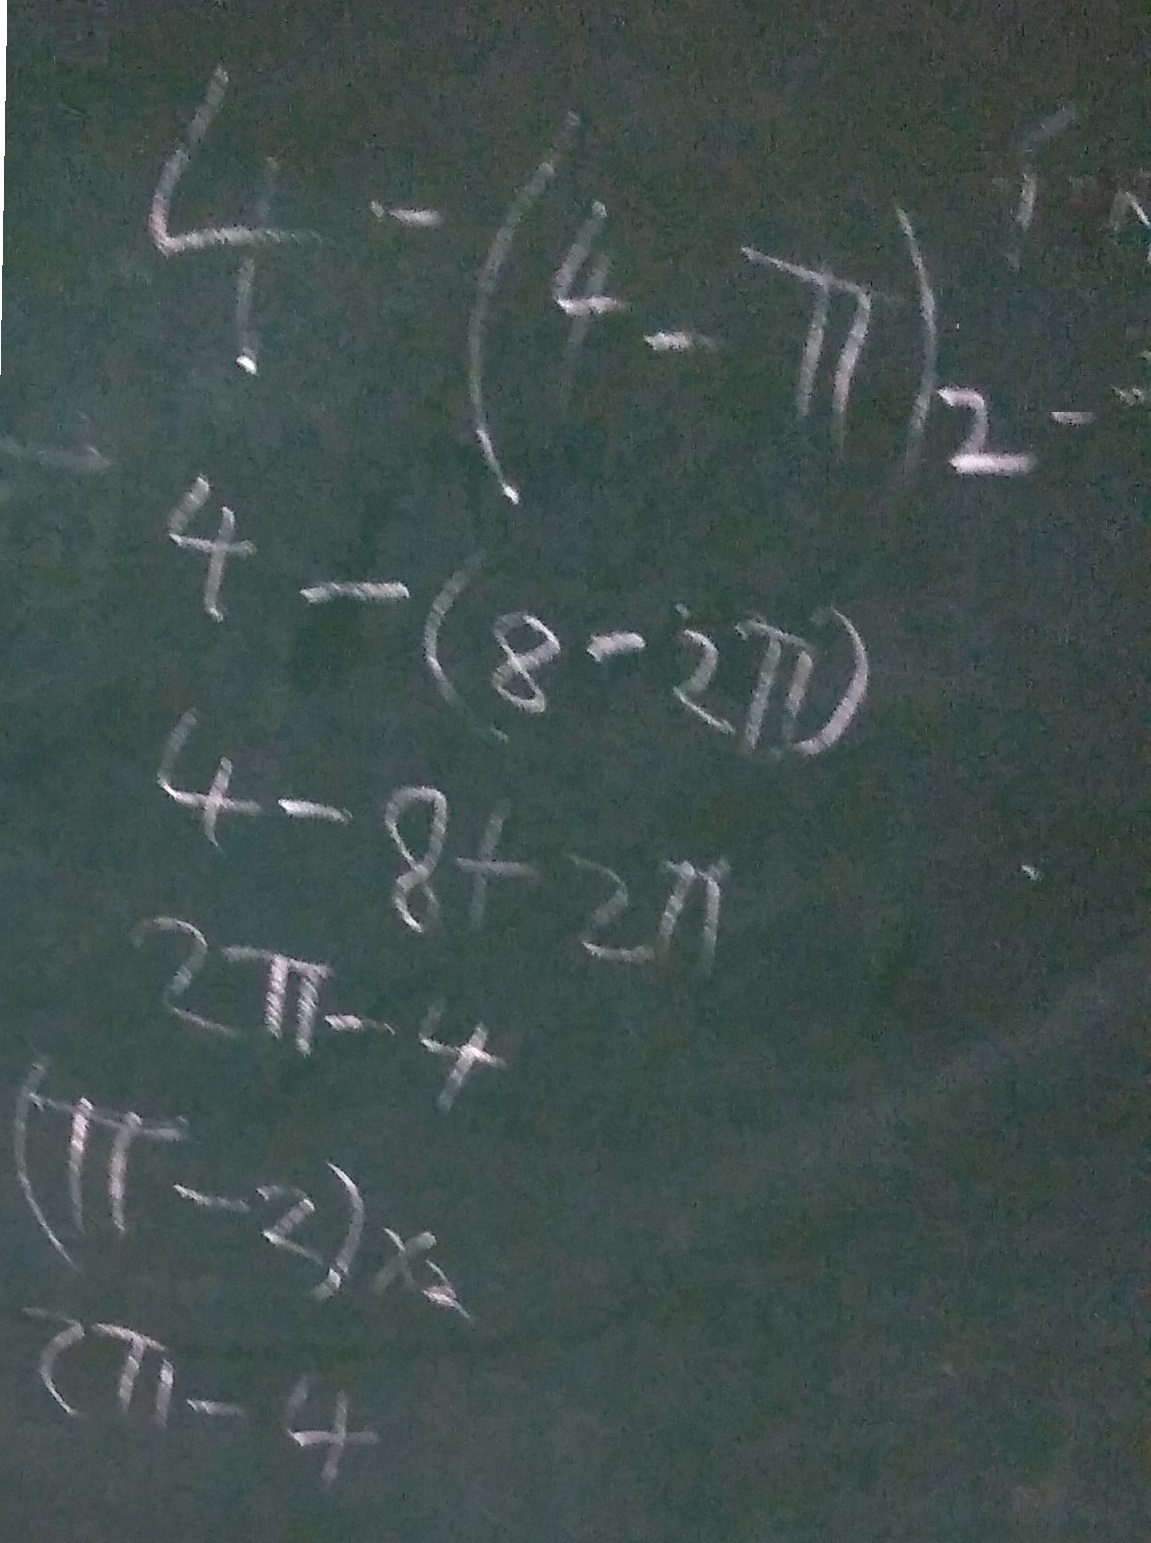 4 - (4 - π)2 -
4 - (8 - 2π)
4 - 8 + 2π
2π - 4
(π - 2)x2
2π - 4